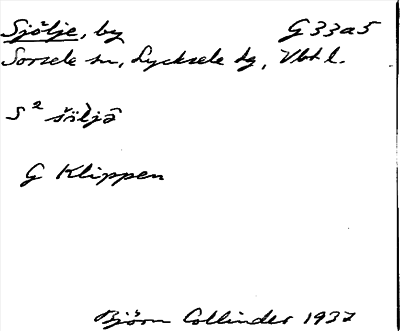 Sjölje, by G 33 a 5
Sorsele sn, Lycksele lg, Vbt l.
S² šöljə̂
G Klippen
Björn Collinder 1937